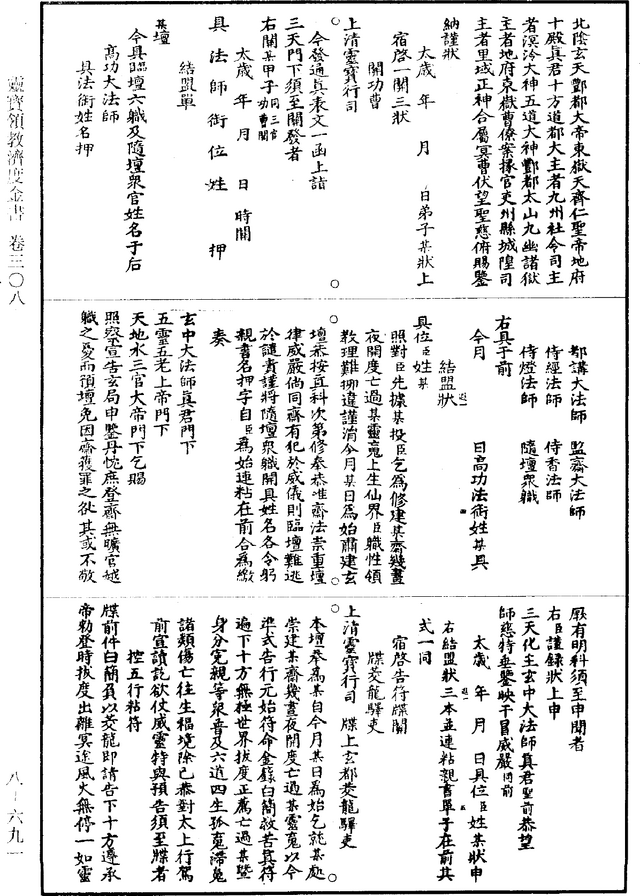 北陰玄天酆都大帝東嶽天齊仁聖帝地府
十殿真君十方道都大主者九州社令司主
者溟泠大神五道大神酆都太山九幽諸獄
主者地府東嶽曹僚案掾官吏州縣城隍司
主者里域正神合屬冥曹伏望聖慈俯賜鑒
納謹狀
太歲 年 月 日弟子某狀上
宿啓一關三狀
關功曹
上清靈寶行司
今發遣真表文一函上詣
三天門下須至關發者
右關某甲子功曹同三官關
太歲 年 月 日 時關
具法師銜位姓 押
結盟單
某壇
今具臨壇六職及隨壇衆官姓名于后
高功大法師
具法銜姓名押
都講大法師 監齋大法師
侍經法師 侍香法師
侍燈法師 隨壇衆職
右具于前
今月 日高功法銜姓某具
結盟狀
具位臣姓某
照對臣先據某投臣乞為修建某齋幾晝
夜開度亡過某靈魂上生仙界臣職性領
教理難拋違謹涓今月某日為始肅建玄
壇恭按立科次第修奉恭惟齋法崇重壇
律威嚴倘同齋有犯於威儀則臨壇難逃
於譴責謹將隨壇衆職開具姓名各令躬
親書名押字自臣為始連粘在前合為繳
奏
玄中大法師真君門下
五靈五老上帝門下
天地水三官大帝門下乞賜
照察宣告玄局申鑒丹悃庶登齋無曠官越
職之憂而預壇免因齋獲罪之玼其或不敬
厥有明科須至申聞者
右臣謹錄狀上申
三天化主玄中大法師真君聖前恭望
師慈特垂鑒映干冒威嚴同前
太歲 年 月 日具位臣姓某狀申
右結盟狀三本並連粘親書單子在前其
式一同
宿啓告符牒關
牒茭龍驛吏
上清靈寶行司 牒上玄都茭龍驛吏
本壇奉為某自今月某日為始乞就某處
崇建某齋幾晝夜開度亡過某靈魂以今
準式告行元始符命金錄白簡救苦真符
遍下十方無極世界拔度正薦亡過某暨
身分冤親等衆普及六道四生孤魂滯魄
諸類傷亡往生福境除已恭對太上行駕
前宣讀訖欲仗威靈特與預告須至牒者
控五行粘符
牒前件白簡員以茭龍即請告下十方遵承
帝勑登時拔度出離冥途風火無停一如靈
靈寶領教濟度金書 卷三〇八
八－六九一